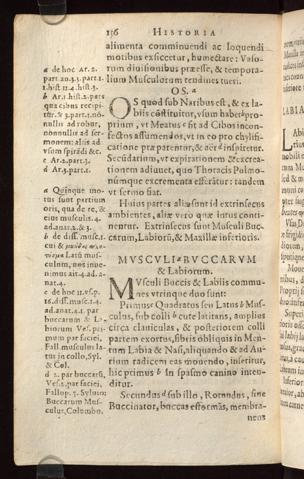 196 HISTORIA
alimenta comminuendi ac loquendi
motibus exsiccetur, humectare: Vaso-
rum diuisionibus præesse, & tempora-
lium Musculorum tendines tueri.
OS. a
OS quod sub Naribus est, & ex la-
biis cōstituitur, vsum habet
vt Meatus sit ad Cibos incon-
fectos assumendos, vt in eo pro chylifi-
catione præparentur, & aër d inspiretur.
Secūdarium, vt expirationem & excrea-
tionem adiuuet, quo Thoracis Pulmo-
númque excrementa efferātur: tandem
vt sermo fiat.
Huius partes aliæ sunt id extrinsecus
ambientes, aliæ verò quæ intus conti-
nentur. Extrinsecus sunt Musculi Buc-
carum, Labiorū, & Maxillæ inferioris.
MVSCVLI a BVCCARVM
& Labiorum.
MVsculi Buccis & Labiis commu-
nes vtrinque duo sunt.
Primus c Quadratus seu Latus b Mus-
culus, sub colli b cute latitans, amplius
circa clauiculas, & posteriorem colli
partem exortus, fibris obliquis in Men-
tum Labia & Nasi, aliquando & ad Au-
rium radicem eas mouendo, inseritur,
hic primus b In spasmo canino inten-
ditur.
Secundus d sub illo, Rotundus, siue
Buccinator, buccas efformās, membra-
neus
a de hoc Ar. 2.
part. 20. 3. part. 1.
1. hist. 11. 4. hist. 3.
b Ar. 1. hist. 2. pars
qua cibus recipi-
tur. & 3. part. 10.
nullis ad robur,
nonnullis ad ser-
monem: aliis ad
vsum spirādi &c.
c Ar. 2. part.
d Ar. 3. part.
a Quinque mo-
tus sunt partium
oris, qua de re, &
eius musculis. 4.
ad. anat. 2. & 3.
b De musc. 1. 3.
cui &
Latū mus-
culum, nos inue-
nimus ait 4. ad. a-
nat. 4.
c de hoc 11. vsp.
16. diss. musc. 1. 4.
ad. anat. 4. 1. par
buccarum & La-
biorum Ves. pri-
mum par faciei,
Fall. musculus la-
tus in collo, Syl.
& Col.
d 2. par buccarū,
Ves. 2. par faciei,
Fallop. 3. Syluio
Buccarum Mus-
culus, Columbo.